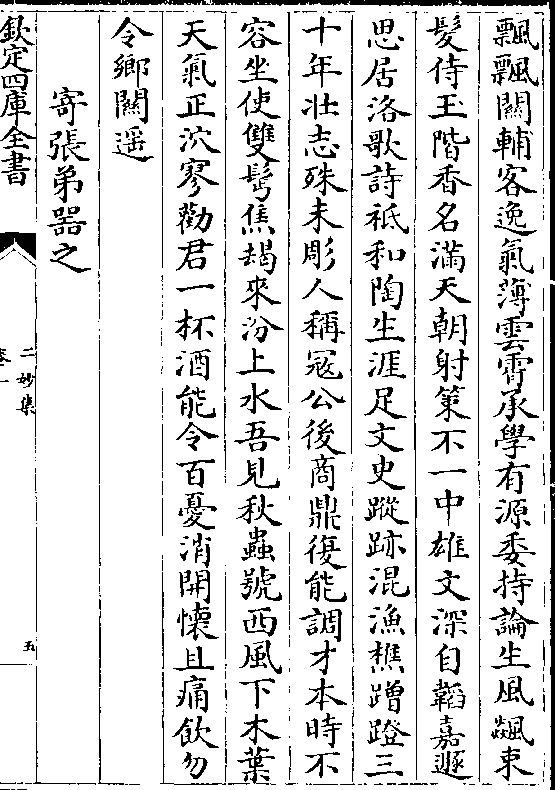 飄飄關輔客逸氣薄雲霄承學有源委持論生風飈束
髮侍玉階香名滿天朝射策不一中雄文深自韜嘉遯
思居洛歌詩祗和陶生涯足文史蹤跡混漁樵蹭蹬三
十年壯志殊未彫人稱冦公後商鼎復能調才本時不
容坐使雙鬂焦朅來汾上水吾見秋蟲號西風下木葉
天氣正泬寥勸君一杯酒能令百憂消開懷且痛飲勿
令鄉關遥
寄張弟器之
欽定四庫全書
二妙集
卷一
五